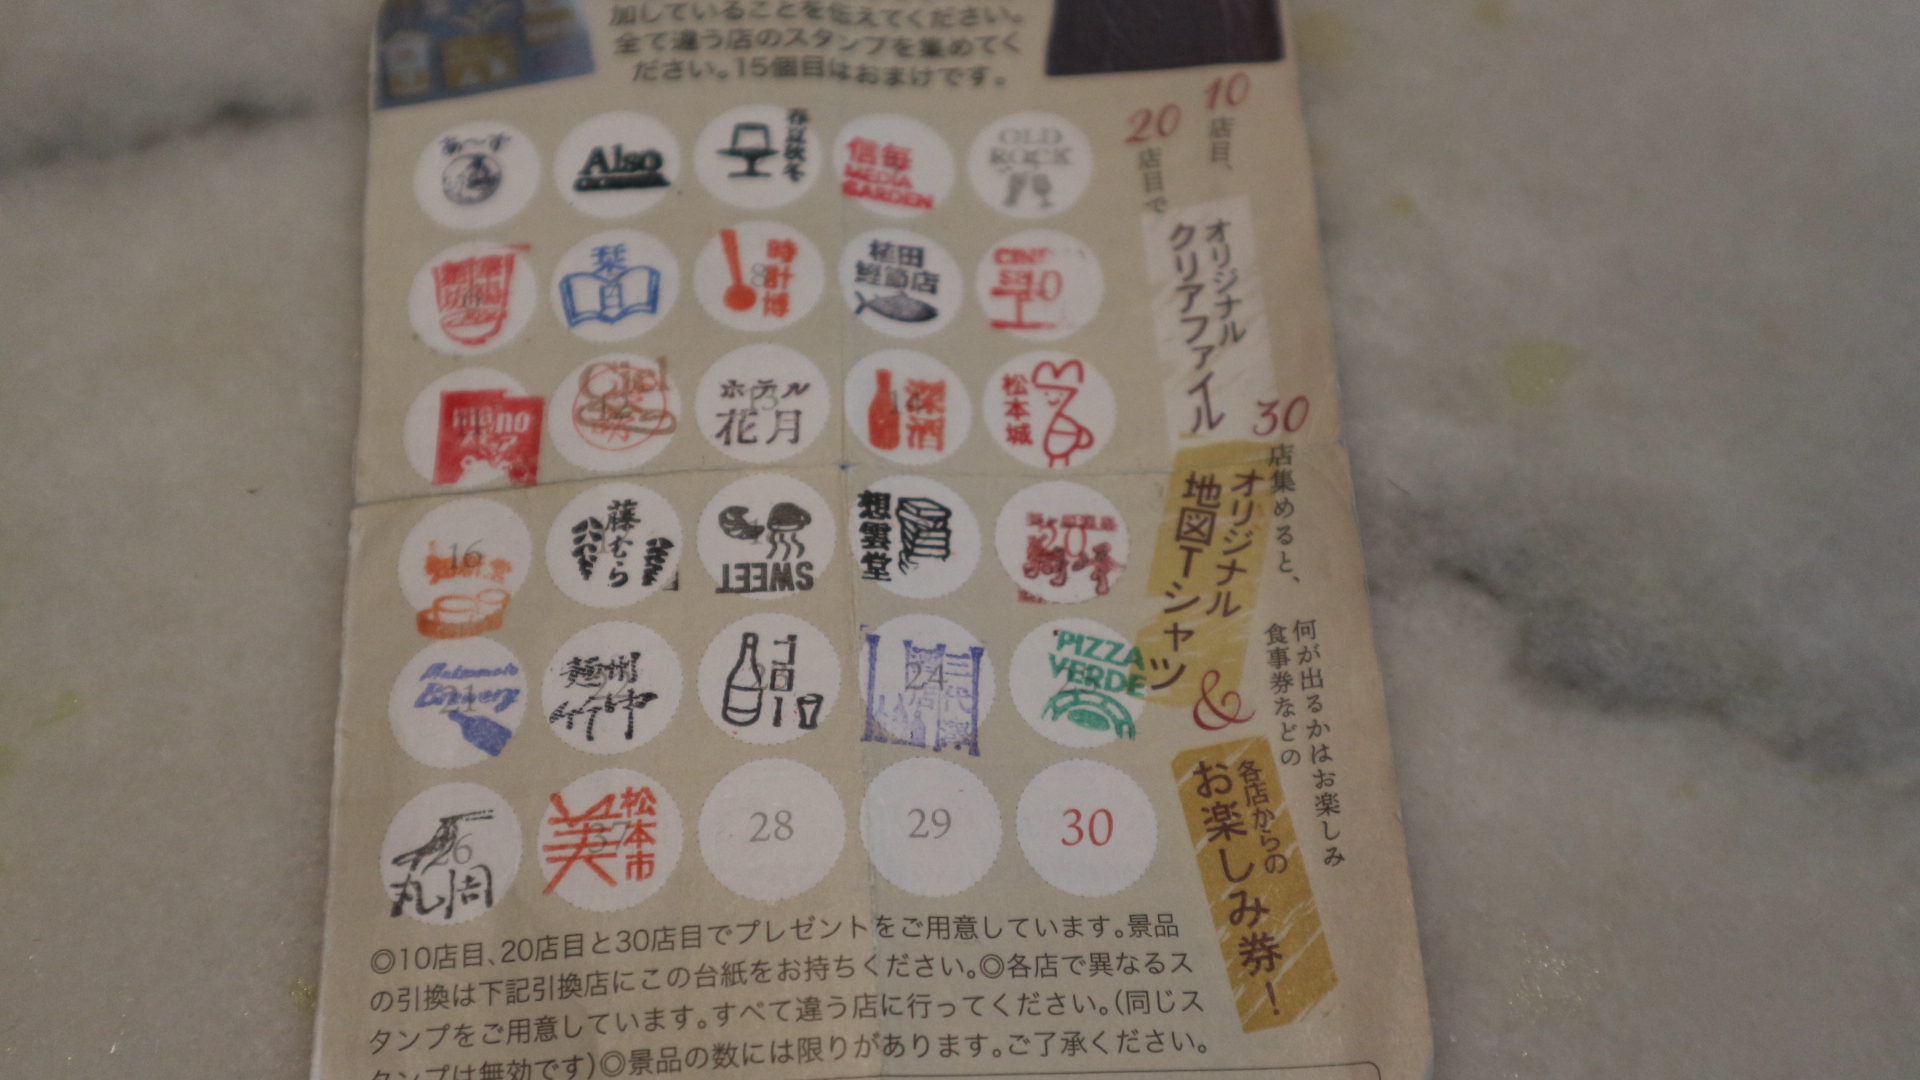 加していることを伝えてください。
全て違う店のスタンプを集めてく
ださい。15個目はおまけです。
10店目、
20店目で
オリジナル
クリアファイル
30店集めると、
オリジナル
地図Tシャツ
&
何が出るかはお楽しみ
食事券などの
各店からの
お楽しみ券！
あ〜す
Also
春夏秋冬
信毎
MEDIA
GARDEN
OLD
ROCK
栞
時計博
8
植田
鰹節店
10
mano
12
ホテル
花月
13
14
深酒
松本城
16
藤むら
SWEET
想雲堂
20
Matsumoto
Brewery
21
麺州竹中
22
24
三代澤
PIZZA
VERDE
26
丸周
松本市
美
27
28
29
30
◎10店目、20店目と30店目でプレゼントをご用意しています。景品
の引換は下記引換店にこの台紙をお持ちください。◎各店で異なるス
タンプをご用意しています。すべて違う店に行ってください。（同じス
タンプは無効です）◎景品の数には限りがあります。ご了承ください。